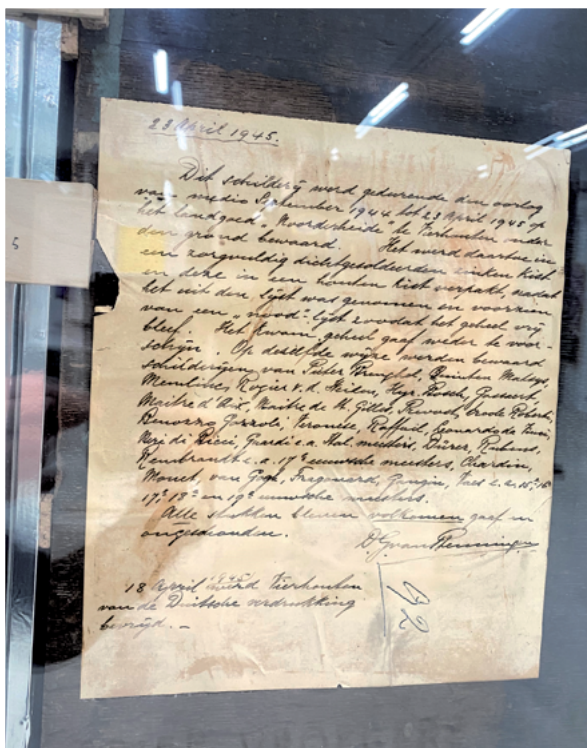 5
23 April 1945.
Dit schilderij werd gedurende den oorlog
van medio September 1944 tot 23 April 1945 op
het landgoed „Noorderheide te Vierhouten onder
den grond bewaard. Het werd daartoe in
een zorgvuldig dichtgesoldeerden zinken kist
en deze in een houten kist verpakt, nadat
het uit den lijst was genomen en voorzien
van een „nood"-lijst zoodat het geheel vrij
bleef. Het kwam geheel gaaf weder te voor-
schijn. Op dezelfde wijze werden bewaard
schilderijen van Pieter Breughel, Quinten Matsys,
Memlinc, Rogier v. d. Weiden, Hyr. Bosch, Gossaert,
Maitre d'Aix, Maitre de St. Gilles, Prevost, Ercole Roberti,
Benozzo Gozzoli, Veronese, Raffaël, Leonardo da Vinci,
Neri di Bicci, Guardi e.a. Ital. meesters, Dürer, Rubens,
Rembrandt e.a. 17e eeuwsche meesters, Chardin,
Monet, van Gogh, Fragonard, Gaugin, e.a. 15e, 16e
17e 18e en 19e eeuwsche meesters.
Alle stukken bleven volkomen gaaf en
ongeschonden.
D.G. van Beuningen
92
18 April 1945 werd Vierhouten
van de Duitsche verdrukking
bevrijd. —